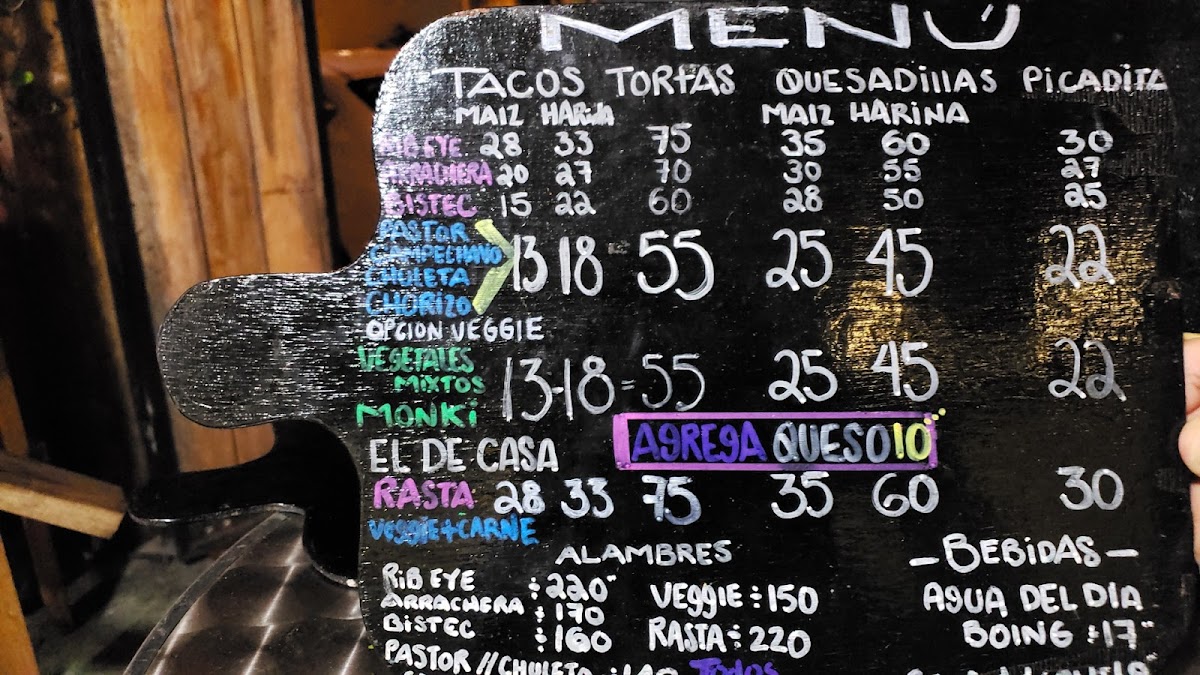 MENÚ
TACOS TORTAS QUESADILLAS PICADITA
MAIZ HARINA MAIZ HARINA
RIB EYE 28 33 75 35 60 30
ARRACHERA 20 27 70 30 55 27
BISTEC 15 22 60 28 50 25
PASTOR
CAMPECHANO
CHULETA
CHORIZO
13 18 55 25 45 22
OPCION VEGGIE
VEGETALES
MIXTOS
MONKI
13-18=55 25 45 22
AGREGA QUESO 10
EL DE CASA
RASTA 28 33 75 35 60 30
VEGGIE+CARNE
ALAMBRES
RIB EYE ÷220
ARRACHERA ÷170
BISTEC ÷160
PASTOR // CHULETA
VEGGIE ÷150
RASTA ÷ 220
TODOS
-BEBIDAS-
AGUA DEL DIA
BOING ÷17